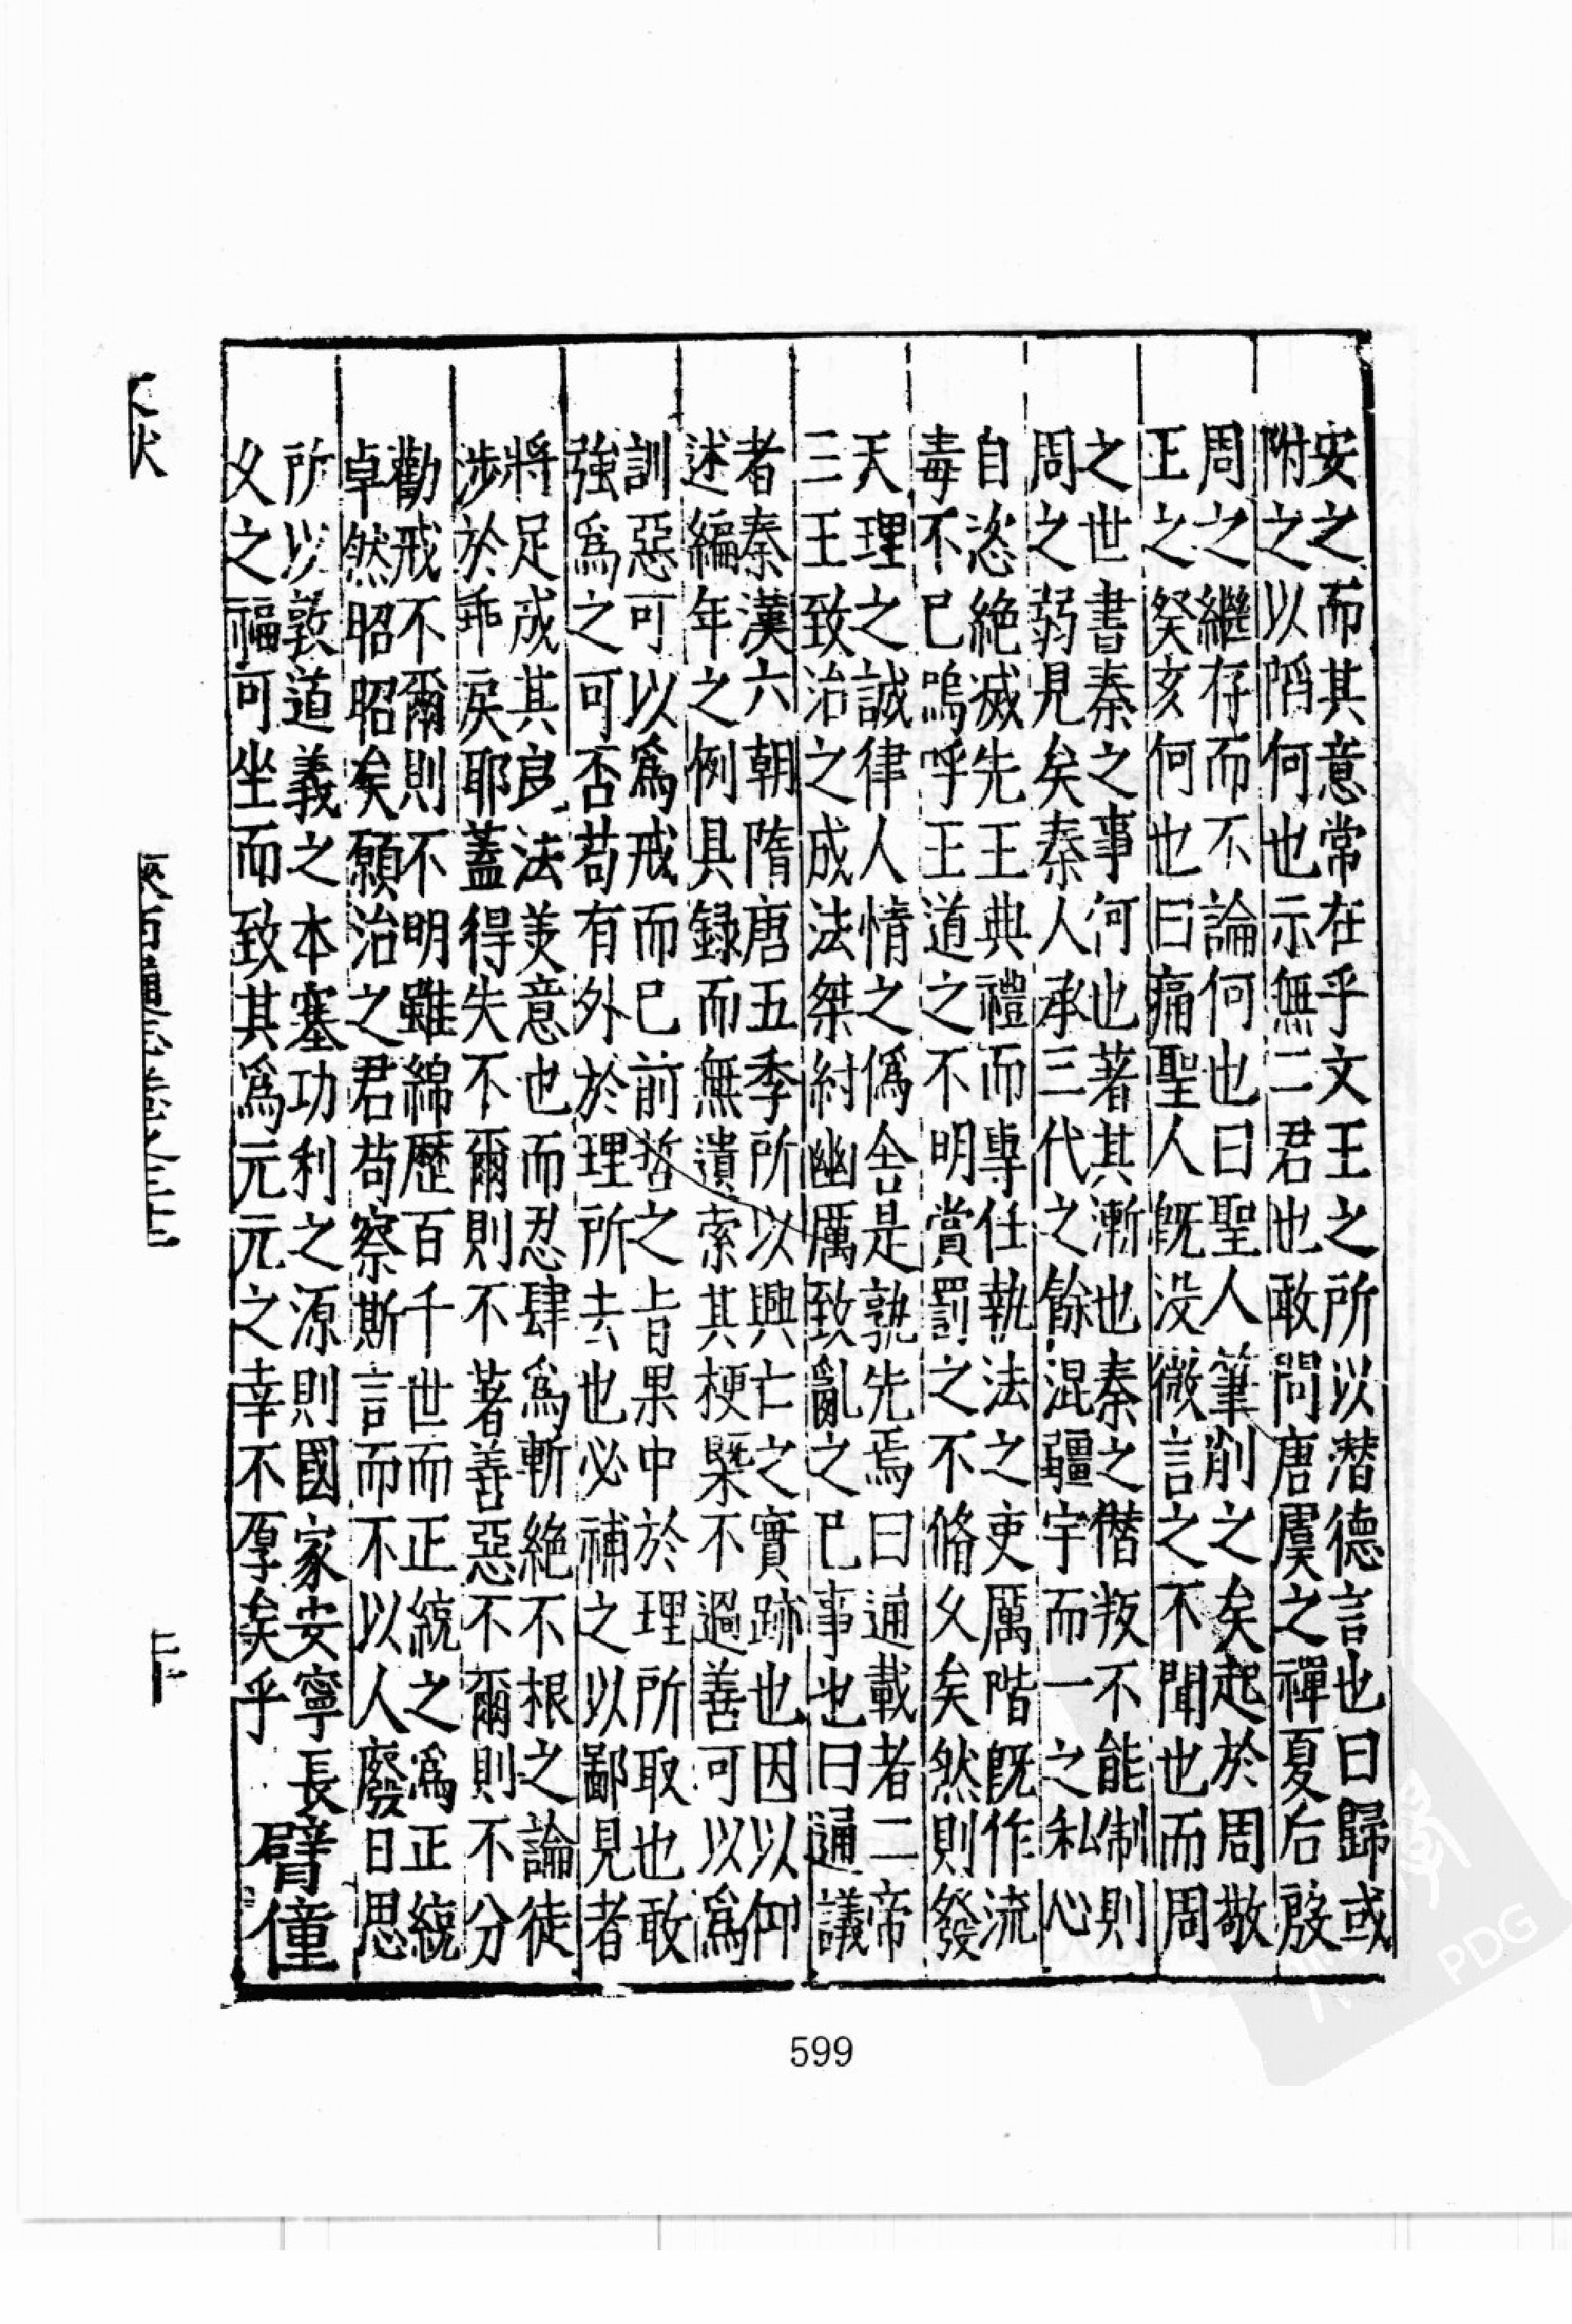 安之而其意常在乎文王之所以潛德言也曰歸或
附之以䧟何也示無二君也敢問唐虞之禪夏后殷
周之繼存而不論何也曰聖人筆削之矣起於周敬
王之癸亥何也曰痛聖人旣没微言之不聞也而周
之世書秦之事何也著其漸也秦之僭叛不能制則
周之弱見矣秦人承三代之餘混疆宇而一之私心
自恣絶滅先王典禮而專任執法之吏厲階旣作流
毒不已嗚呼王道之不明賞罰之不脩久矣然則發
天理之誠律人情之僞舍是孰先焉曰通載者二帝
三王致治之成法桀紂幽厲致亂之已事也曰通議
者秦漢六朝隋唐五季所以興亡之實跡也因以仰
述編年之例具録而無遺索其梗槩不過善可以爲
訓惡可以爲戒而已前哲之旨果中於理所取也敢
強爲之可否苟有外於理所去也必補之以鄙見者
將足成其良法美意也而忍肆爲斬絶不根之論徒
涉於乖戾耶蓋得失不爾則不著善惡不爾則不分
勸戒不爾則不明雖綿歷百千世而正統之爲正統
卓然昭昭矣願治之君苟察斯言而不以人廢日思
所以敦道義之本塞功利之源則國家安寧長
久之福可坐而致其爲元元之幸不厚矣乎
臂僮
599
PDG